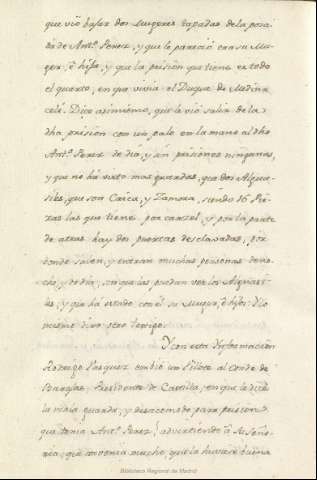 que vió bajar dos Mugeres tapadas de la posa-
da de Antº. Perez, y que le pareció era su Mu-
ger, ó hija, y que la prision que tiene es todo
el quarto, en que vivia el Duque de Medina
celi. Dice asimismo, que le vió salir de la
dha prision con un palo en la mano al dho
Antº. Perez de dia, y sin prisiones ningunas,
y que no há visto mas guardas, que dos Algua-
siles, que son Caica, y Zamora, siendo 16 Pie-
zas las que tiene por carcel, y por la parte
de atras hay dos puertas desclavadas, por
donde salen, y entran muchas personas de no-
che, y de dia, sin que las puedan ver los Alguasi-
les, y que há estado con él su Muger, é hija. Lo
mismo dixo otro testigo.
Y con esta Ynformacion
Rodrigo Vasquez embió un Villete al Conde de
Barajas, Presidente de Castilla, en que le dice
la mala guarda, y desacato de para prision
que tenia Antº. Perez; advirtiendo á Su Seño-
ria, que convenia mucho, que la huviese buena
Biblioteca Regional de Madrid